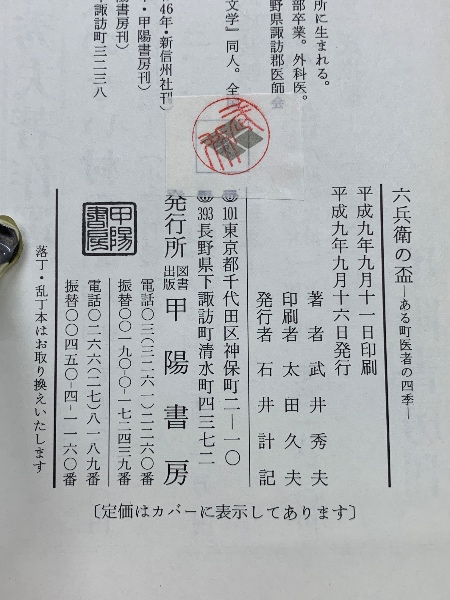 所に生まれる。
部卒業。外科医。
野県諏訪郡医師会
文学』同人。全
46年・新信州社刊
・甲陽書房刊)
書房刊)
諏訪町三二三八
六兵衛の盃―ある町医者の四季―
平成九年九月十一日印刷
平成九年九月十六日発行
著者 武井秀夫
印刷者 太田久夫
発行者 石井計記
101 東京都千代田区神保町二―一〇
393 長野県下諏訪町清水町四三七二
発行所 図書出版 甲陽書房
電話〇三(三二六一)二二六〇番
振替〇〇一九〇-〇-一七二四三九番
電話〇二六六(二七)八一八九番
振替〇〇四五〇-四-二一六〇番
甲陽書房
落丁・乱丁本はお取り換えいたします
〔定価はカバーに表示してあります〕